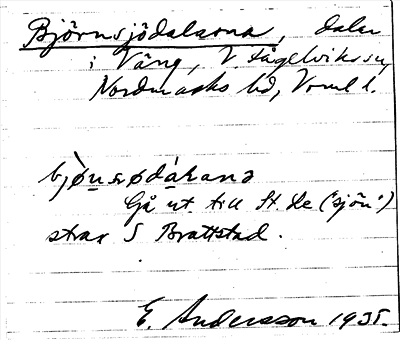 Björnsjödalarna, dalar
i Väng, V. Fågelviks sn,
Nordmarks hd, Vrml. l.
bjø̀nsødáɫana
Gå ut till St. Le ("sjön")
strax S Brattstad.
E. Andersson 1935.